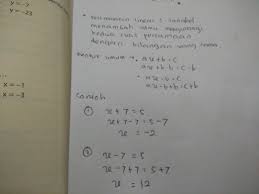 y = -23
x = -1
x = -3
Persamaan linear 1 variabel
menambah atau mengurangi
kedua ruas persamaan
dengan bilangan yang sama
Bentuk umum → ax + b = c
ax + b - b = c - b
ax - b = c
ax - b + b = c + b
Contoh
① x + 7 = 5
x + 7 - 7 = 5 - 7
x = -2
② x - 7 = 5
x - 7 + 7 = 5 + 7
x = 12